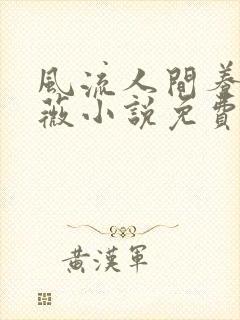 風流人間
薇小說免費
黃漢軍